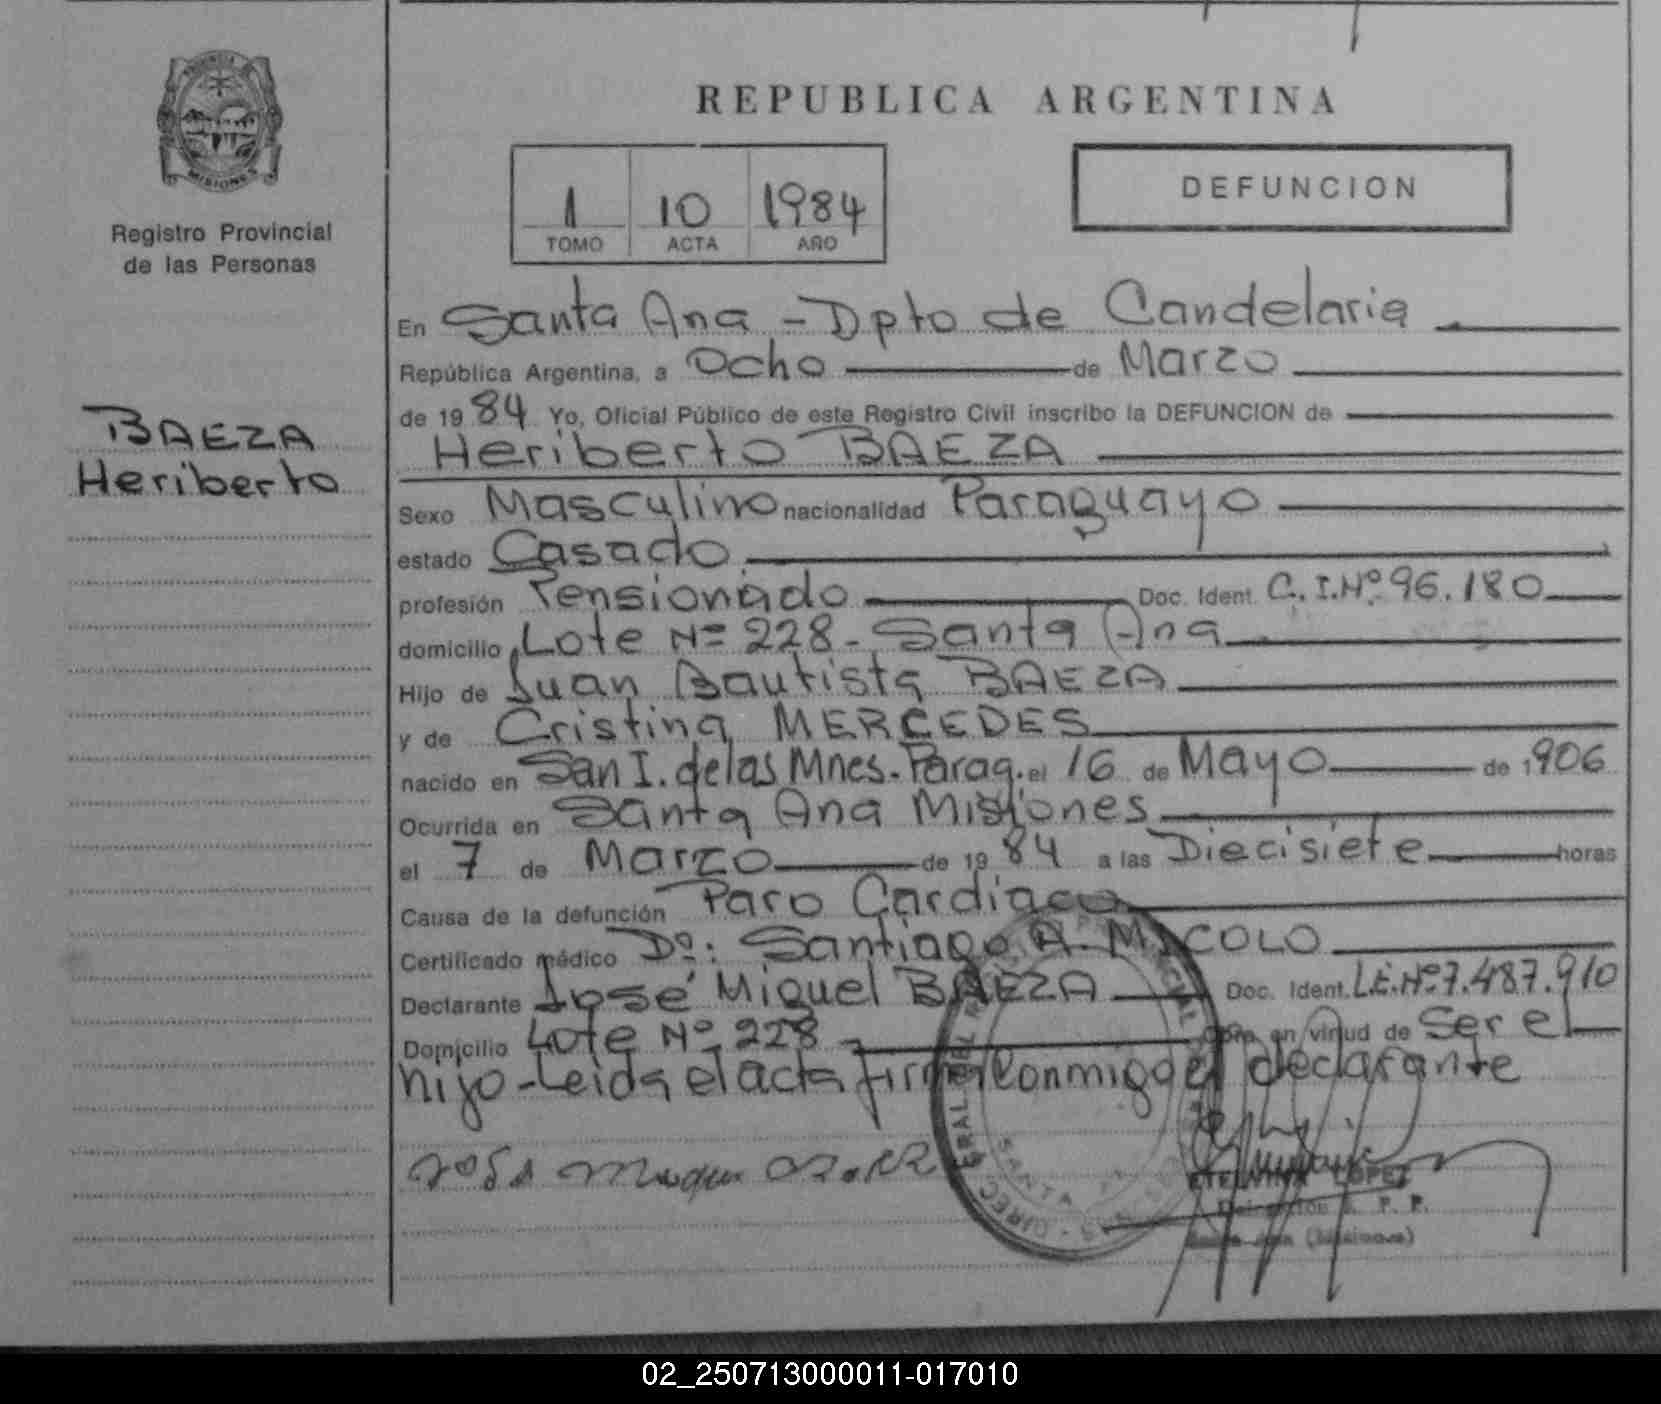 REPUBLICA ARGENTINA
MISIONES
Registro Provincial
de las Personas
1 10 1984
TOMO ACTA AÑO
DEFUNCION
BAEZA
Heriberto
En Santa Ana - Dpto de Candelaria
República Argentina, a Ocho de Marzo
de 1984 Yo, Oficial Público de este Registro Civil inscribo la DEFUNCION de
Heriberto BAEZA
Sexo Masculino nacionalidad Paraguayo
estado Casado
profesión Pensionado Doc. Ident. C.I.Nº 96.180
domicilio Lote Nº 228 - Santa Ana
Hijo de Juan Bautista BAEZA
y de Cristina MERCEDES
nacido en San I. de las Mnes. Parag. el 16 de Mayo de 1906
Ocurrida en Santa Ana Misiones
el 7 de Marzo de 1984 a las Diecisiete horas
Causa de la defunción Paro Cardiaco
Certificado médico Dº: Santiago A. COLO
Declarante José Miguel BAEZA Doc. Ident. L.E.Nº 7.487.910
Domicilio Lote Nº 228 en virtud de Ser el
hijo - Leida el acta firma conmigo el declarante
LOPEZ
SANTA